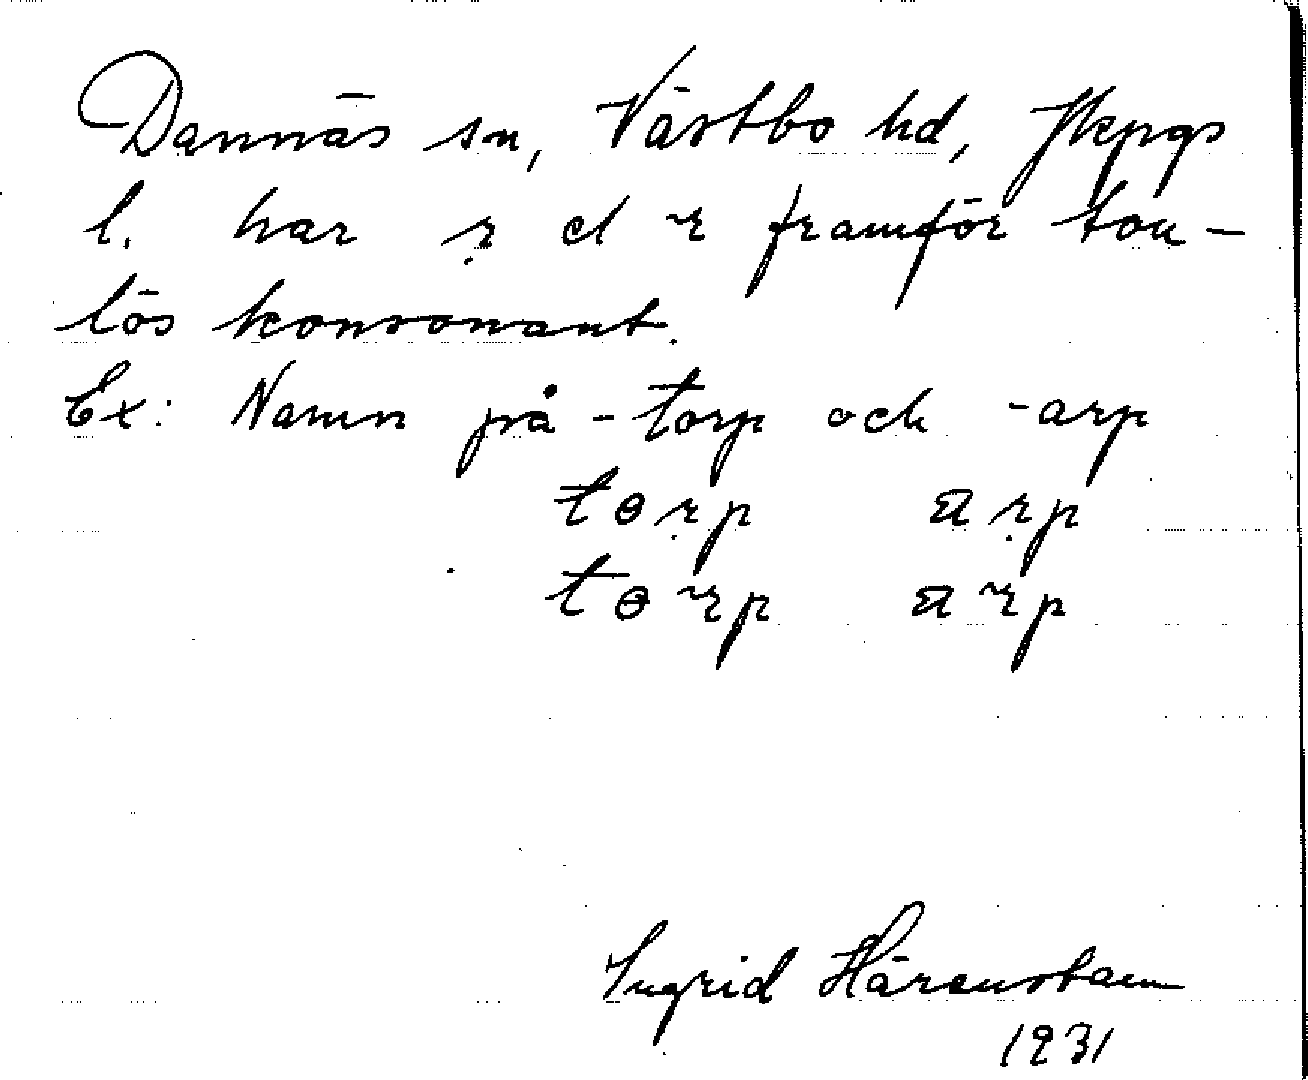 Dannäs sn, Västbo hd, Jkpgs
l. har ṛ el r̃ framför ton-
lös konsonant.
Ex: Namn på -torp och -arp
tɵṛp aṛp
tɵr̃p ar̃p
Ingrid Härenstam
1931